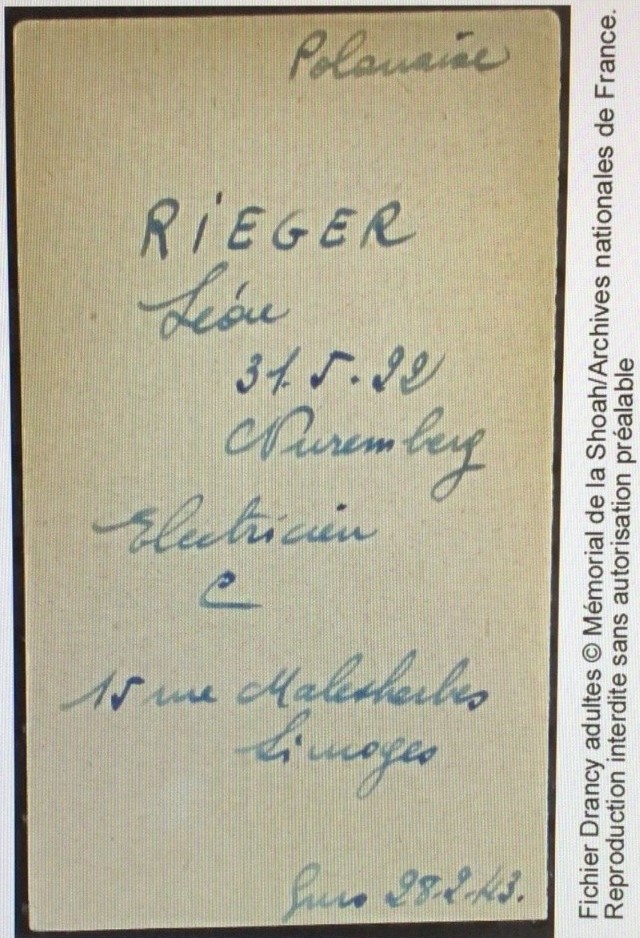 Polonaise
RIEGER
Léon
31.5.22
Nuremberg
Electricien
C
15 rue Malesherbes
Limoges
Gurs 28-2-43.
Fichier Drancy adultes © Mémorial de la Shoah/Archives nationales de France.
Reproduction interdite sans autorisation préalable